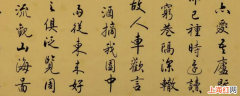 亦愛吾廬
已種時還讀
窮巷隔深轍
故人車歡言
酒摘我園中
雨從東來好
之俱泛覽周
流觀山海圖